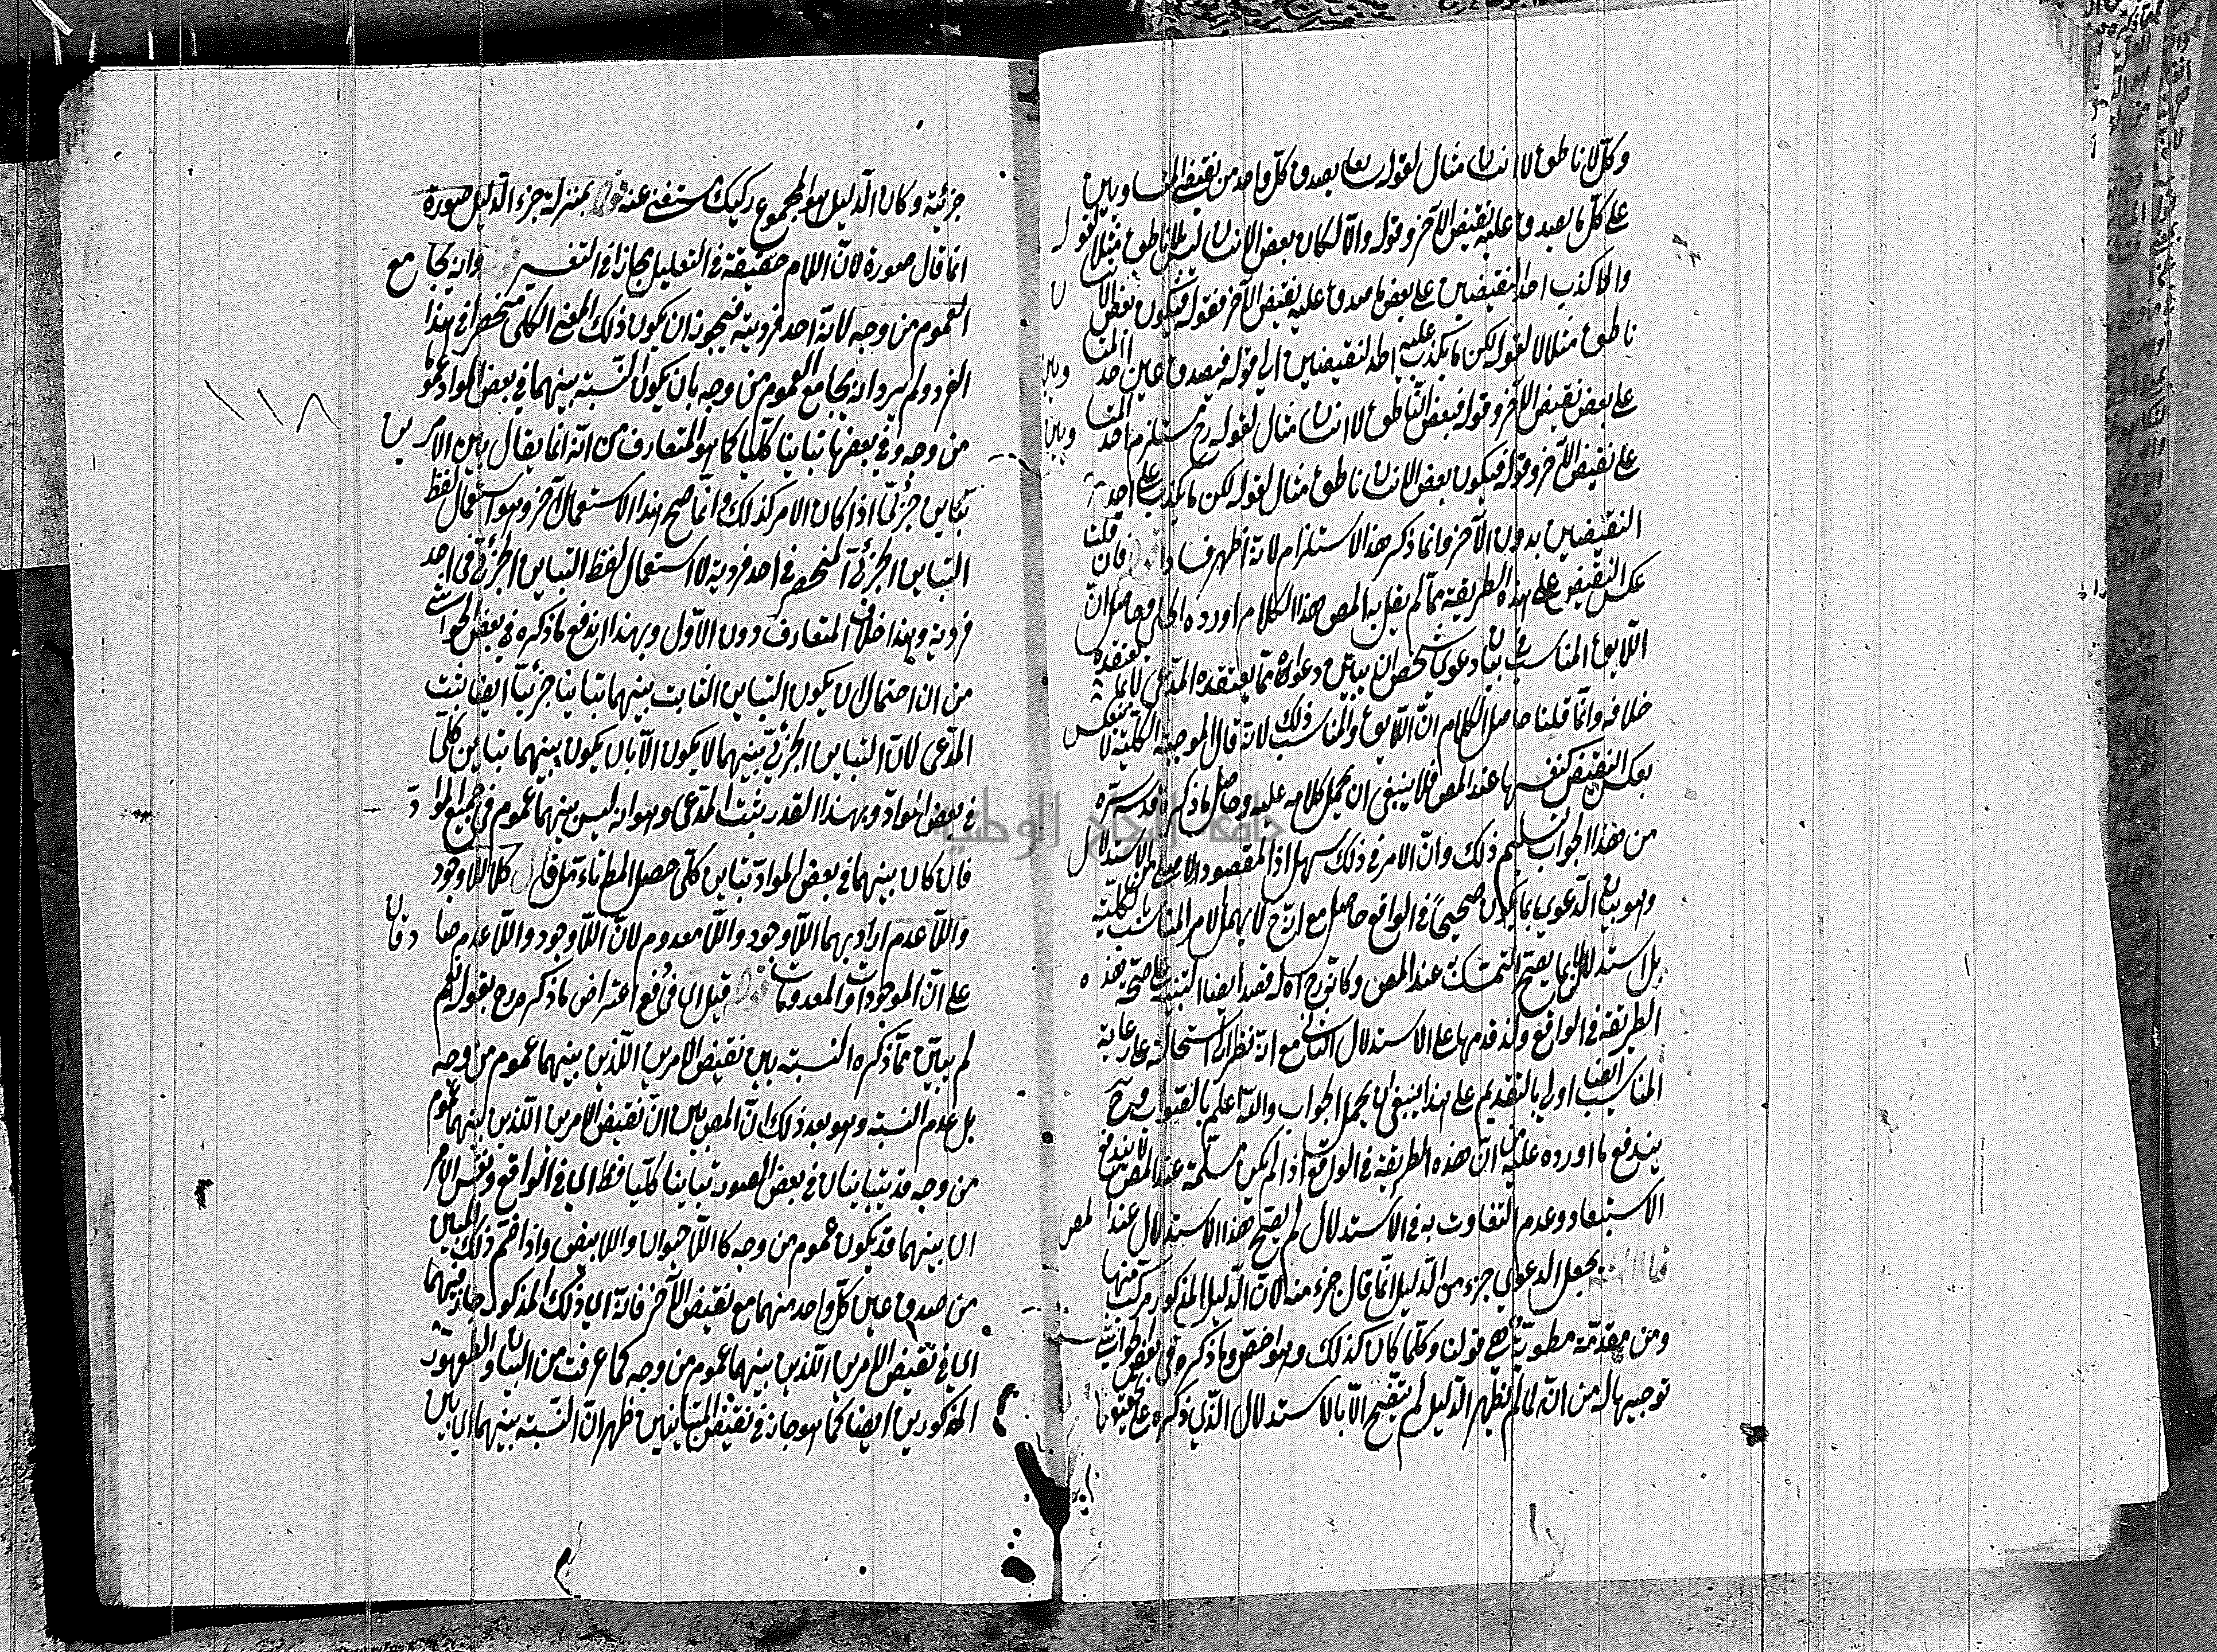 وكل لا ناطق لا انسان مثال لقوله يصدق كل واحد من نقيضي المتساويين
على كل ما يصدق عليه نقيض الآخر وقوله والا لكان بعض الانسان ليس لا ناطق مثلا لقوله
والا كذب احد النقيضين على بعض ما صدق عليه نقيض الآخر فقوله فيكون بعض الانسان
ناطق مثلا لا لقوله لكن ما يكذب عليه احد النقيضين الى قوله فيصدق عين احد المتساويين
على بعض نقيض الآخر وقوله فبعض الناطق لا انسان مثال لقوله رح يستلزم احد المتساويين
على نقيض الآخر وقوله فيكون بعض الانسان ناطق مثال لقوله لكن ما يكذب عليه احد
النقيضين بدون الآخر وانما ذكر هذا الاستلزام لانه اظهر فسادا فان قلت
عكس النقيض على هذه الطريقة مما لم يقل به المص هذا الكلام اورده وحاصل ان
اللايق المناسب دعوى شخص ان يبين دعواه مما يعتقده المدعي لا بما يعتقده
خلافه وانما قلنا حاصل الكلام ان اللايق والمناسب ذلك لانه قال الموجبة الكلية لا تنعكس
بعكس النقيض كنفسها عند المص فلا ينبغي ان يحمل كلامه عليه وحاصل ما ذكره قدس سره
من هذا الجواب تسليم ذلك وان الامر في ذلك سهل اذ المقصود الاصلي من الاستدلال
وهو بيان الدعوى بما يكون صحيحا في الواقع حاصل مع انه رح لا يهمل الامر المناسب بالكلية
بل استدل ثانيا بما يصح التمسك به عند المص وكانه رح قصد ايضا التنبيه على صحة هذه
الطريقة في الواقع ولذا قدمها على الاستدلال الثاني مع انه نظرا الى اشتماله على رعاية
المناسب ايضا اولى بالتقديم على هذا ينبغي ان يحمل الجواب والله اعلم بالصواب وح
يندفع ما اورده عليه ان هذه الطريقة في الواقع اذا لم يكن مسلمة عند المص لا يندفع
الاستبعاد وعدم التفاوت به في الاستدلال لم يصح هذا الاستدلال عند المص
يجعل الدعوى جزء من الدليل انما قال جزء منه لان الدليل المذكور مركب منها
ومن مقدمة مطوية هي قولن وكلما كان كذلك وهو اخص وما ذكره في بعض الحواشي
توجيها له من انه لما لم يظهر الدليل لم يتضح الا بالاستدلال الذي ذكره على
جزئية وكان الدليل هو المجموع ركيك مستغنى عنه قوله بمنزلة جزء الدليل صورة
انما قال صورة لان اللام حقيقة في التعليل مجاز في التفسير قوله وانه يجامع
العموم من وجه لانه احد فرديه فيجوز ان يكون ذلك المعنى الكلي منحصرا في هذا
الفرد ولم يرد انه يجامع العموم من وجه بان يكون النسبة بينهما في بعض المواد عموما
من وجه وفي بعضها تباينا كليا كما هو المتعارف من انه انما يقال بين الامرين
تباين جزئي اذا كان الامر كذلك وانما صح هذا الاستعمال الآخر وهو استعمال لفظ
التباين الجزئي المنحصر في احد فرديه لا استعمال لفظ التباين الجزئي في احد
فرديه وهذا خلاف المتعارف دون الاول وبهذا اندفع ما ذكره في بعض الحواشي
من ان احتمال ان يكون التباين الثابت بينهما تباينا جزئيا ايضا يثبت
المدعى لان التباين الجزئي بينهما لا يكون الا بان يكون بينهما تباين كلي
في بعض المواد وبهذا القدر يثبت المدعى وهو انه ليس بينهما عموم في جميع المواد
فان كان بينهما في بعض المواد تباين كلي حصل المط تأمل قوله كاللاوجود
واللاعدم اراد بهما اللاوجود واللامعدوم لان اللاوجود واللاعدم صادقان
على ان الموجودات والمعدومات قوله قيل اى في دفع اعتراض ما ذكره رح بقوله نعم
لم يبين مما ذكره النسبة بين نقيضي الامرين اللذين بينهما عموم من وجه
بل عدم النسبة وهو بعد ذلك ان المص بين ان نقيضي الامرين اللذين بينهما عموم
من وجه قد يتباينان في بعض الصور تباينا كليا فقط اى في الواقع ونفس الامر
اى بينهما قد يكون عموم من وجه كاللاحيوان واللاابيض واذا ضم ذلك
من صدق عين كل واحد منهما مع نقيض الآخر فانه اى ذلك المذكور جاز فيهما
اى في نقيضي الامرين اللذين بينهما عموم من وجه كما عرفت من البيان والظهور
المذكورين ايضا كما هو جاز في نقيضي المتباينين ظهر ان النسبة بينهما اى بين
جامعة النجاح الوطنية